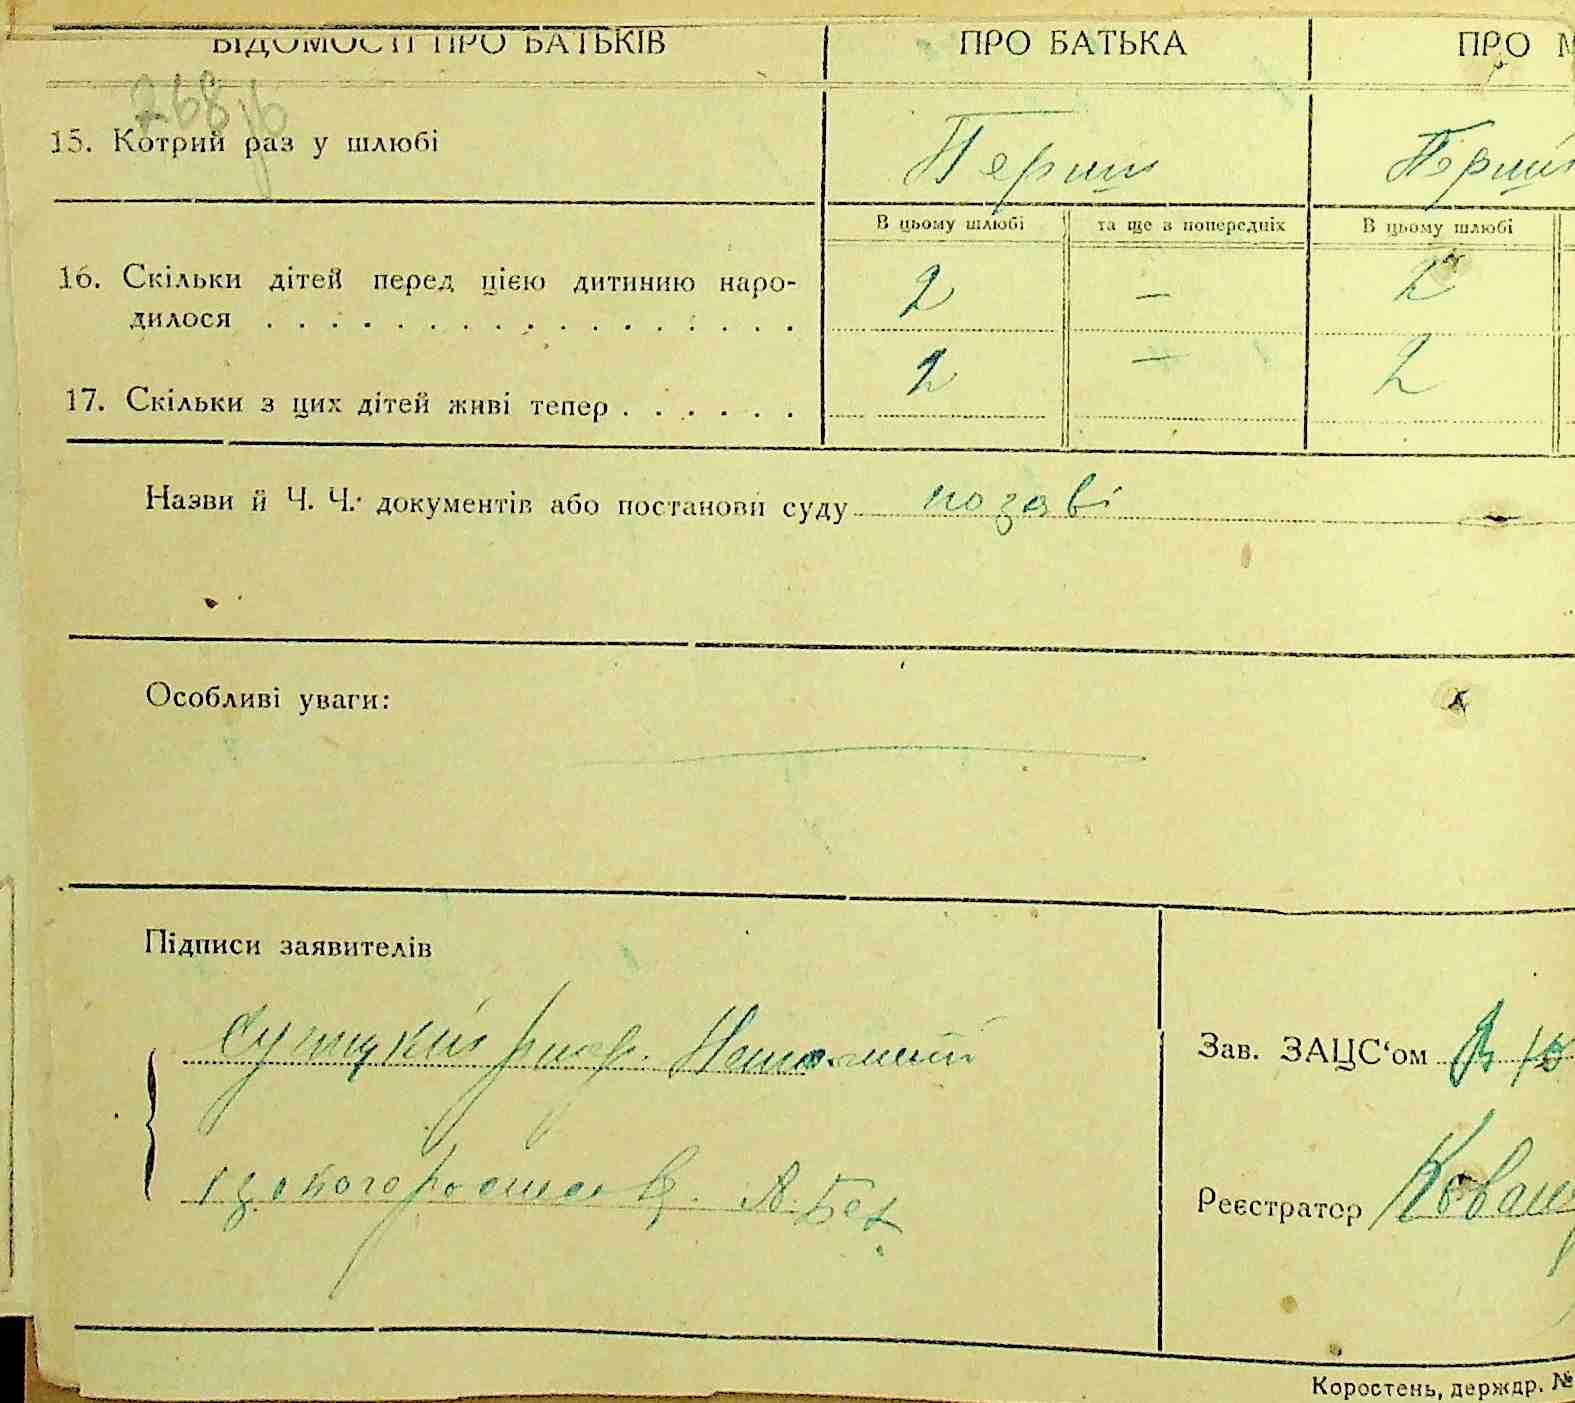 ВІДОМОСТІ ПРО БАТЬКІВ ПРО БАТЬКА ПРО М
268
15. Котрий раз у шлюбі Перший Перший
В цьому шлюбі та ще в попередніх В цьому шлюбі
16. Скільки дітей перед цією дитиною наро-
дилося . . . . . . . . . . . . . . . . . 2 — 2
17. Скільки з цих дітей живі тепер . . . . . . 2 — 2
Назви й Ч. Ч. документів або постанови суду по заві
Особливі уваги:
Підписи заявителів
Зав. ЗАЦС‘ом
А. Бел
Реєстратор
Коростень, держдр. №